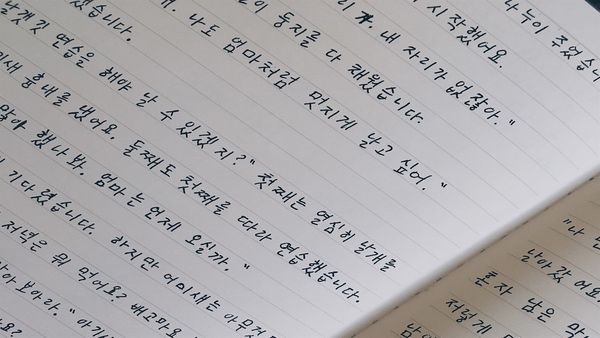 나누어 주었습니
시작했어요.
내 자리가 없잖아."
둥지를 다 채웠습니다.
나도 엄마처럼 멋지게 날고 싶어."
습니다.
날갯짓 연습을 해야 날 수 있겠지?" 첫째는 열심히 날개를
미새 흉내를 냈어요. 둘째도 첫째를 따라 연습했습니다.
했나 봐. 엄마는 언제 오실까."
기다렸습니다. 하지만 어미새는 아무것
저녁은 뭐 먹어요? 배고파요
보아라." 아기
"나
날아갔어요
혼자 남은 막
저렇게
남